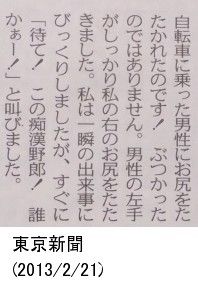 自転車に乗った男性にお尻をた
たかれたのです！　ぶつかった
のではありません。男性の左手
がしっかり私の右のお尻をたた
きました。私は一瞬の出来事に
びっくりしましたが、すぐに
「待て！　この痴漢野郎！　誰
かぁー！」と叫びました。
東京新聞
(2013/2/21)